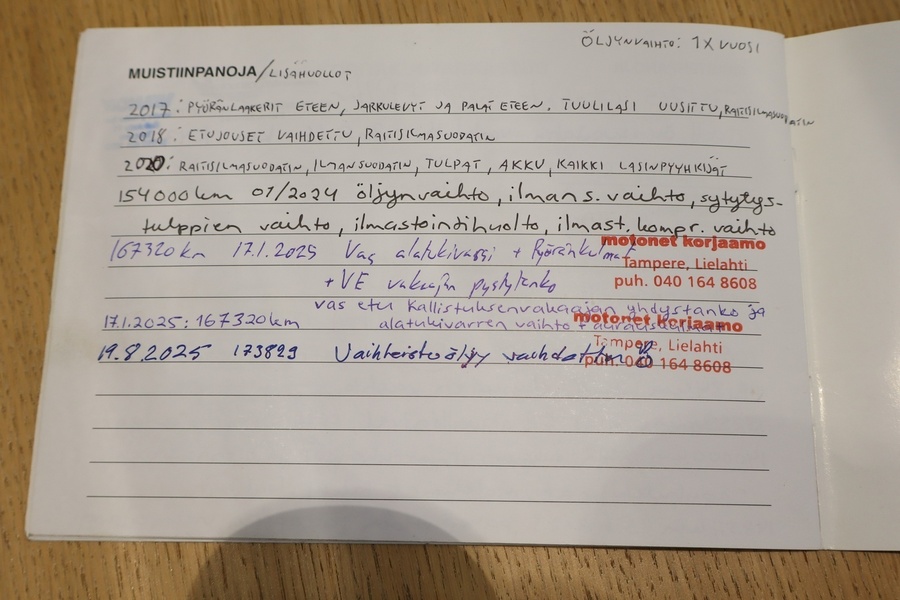 ÖLJYNVAIHTO: 1X VUOSI
MUISTIINPANOJA/LISÄHUOLLOT
2017: PYÖRÄNLAAKERIT ETEEN, JARRULEVYT JA PALAT ETEEN. TUULILASI UUSITTU, RAITISILMASUODATIN
2018: ETUJOUSET VAIHDETTU, RAITISILMASUODATIN
2020: RAITISILMASUODATIN, ILMANSUODATIN, TULPAT, AKKU, KAIKKI LASINPYYHKIJÄT
154000km 01/2024 öljynvaihto, ilmans. vaihto, sytytys-
tulppien vaihto, ilmastointihuolto, ilmast. kompr. vaihto
167320 km 17.1.2025 Vas alatukivarsi + Pyöränkulmat
motonet korjaamo
Tampere, Lielahti
puh. 040 164 8608
+VE vakaajan pystytanko
vas etu kallistuksenvakaajan yhdystanko ja
17.1.2025: 167320km alatukivarren vaihto +
motonet korjaamo
Tampere, Lielahti
puh. 040 164 8608
19.8.2025 173829 Vaihteistoöljy vaihdettu